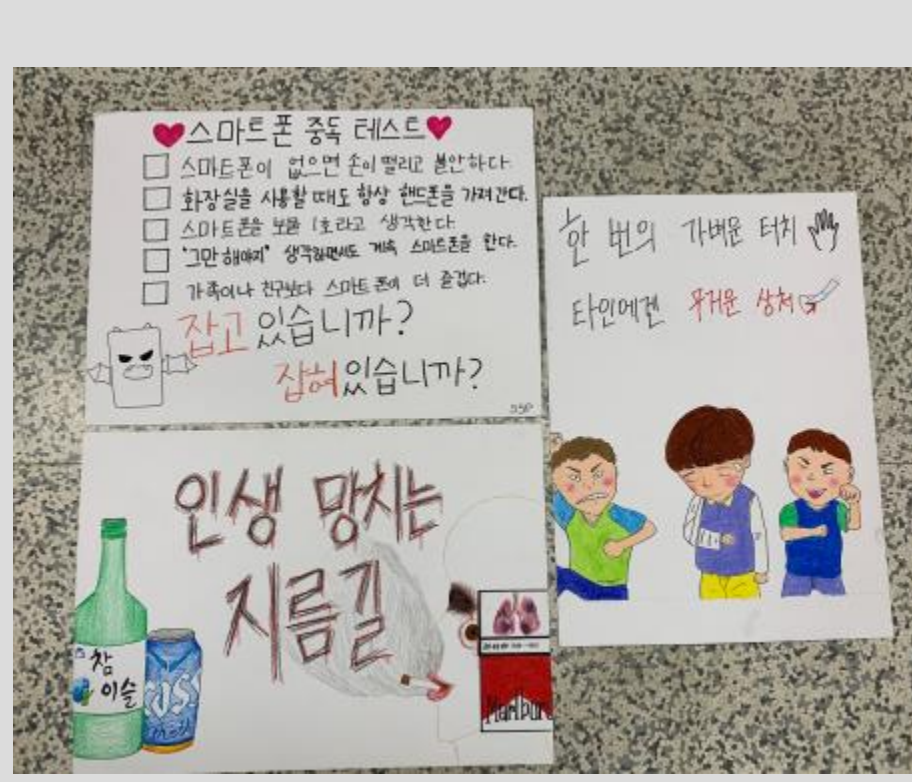 스마트폰 중독 테스트
스마트폰이 없으면 손이 떨리고 불안하다.
화장실을 사용할 때도 항상 핸드폰을 가져간다.
스마트폰을 보물 1호라고 생각한다.
"그만해야지" 생각하면서도 계속 스마트폰을 한다.
가족이나 친구보다 스마트폰이 더 즐겁다.
잡고 있습니까?
잡혀있습니까?
한 번의 가벼운 터치
타인에겐 무거운 상처
인생 망치는
지름길
참
이슬
Marlboro